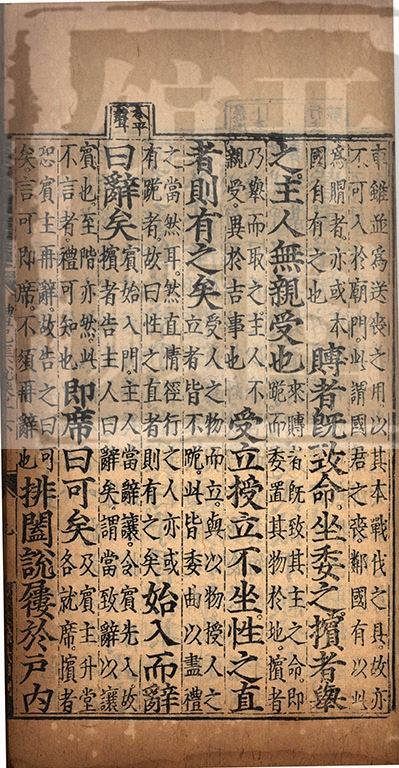 車雖並為送喪之用以其本戰伐之具故亦
不可入於廟門此謂國君之喪鄰國有以此
為賵者亦或本
國自有之也
賻者既致命坐委之擯者舉
之主人無親受也
來賻者既致其主之命即
跪而委置其物於地擯者
乃舉而取之主人不
親受異於吉事也
受立授立不坐性之直
者則有之矣
受人之物而立與以物授人之
立者皆不跪此皆委曲以盡禮
之當然耳然直情徑行之人亦或
有跪者故曰性之直者則有之矣
始入而辭
曰辭矣
賓始入門主人當辭讓令賓先入故
擯者告主人曰辭矣謂當致辭以讓
賓也至階亦然此
不言者禮可知也
即席曰可矣
及賓主升堂
各就席擯者
恐賓主再辭故告之曰可
矣言可即席不須再辭也
排闔說屨於戶內